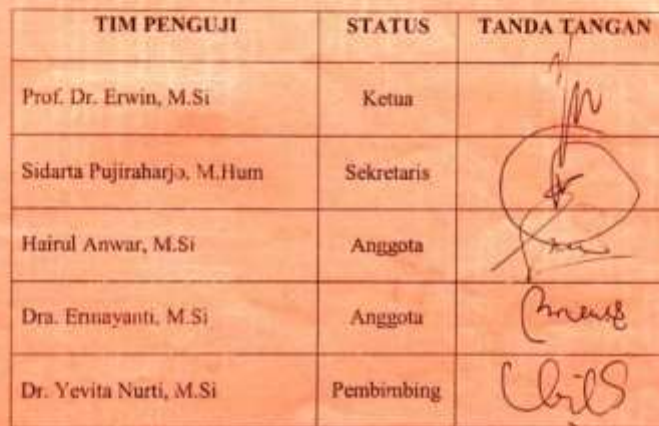 TIM PENGUJI STATUS TANDA TANGAN
Prof. Dr. Erwin, M.Si Ketua
Sidarta Pujiraharjo, M.Hum Sekretaris
Hairul Anwar, M.Si Anggota
Dra. Ermayanti, M.Si Anggota
Dr. Yevita Nurti, M.Si Pembimbing